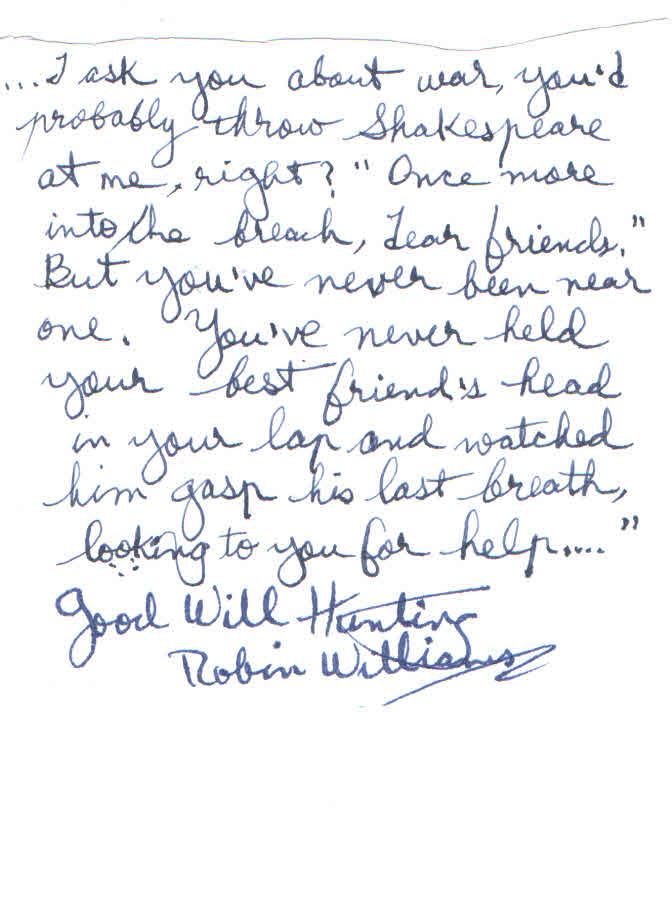 ...I ask you about war, you'd
probably throw Shakespeare
at me, right? "Once more
into the breach, dear friends."
But you've never been near
one. You've never held
your best friend's head
in your lap and watched
him gasp his last breath,
looking to you for help...."
Good Will Hunting
Robin Williams